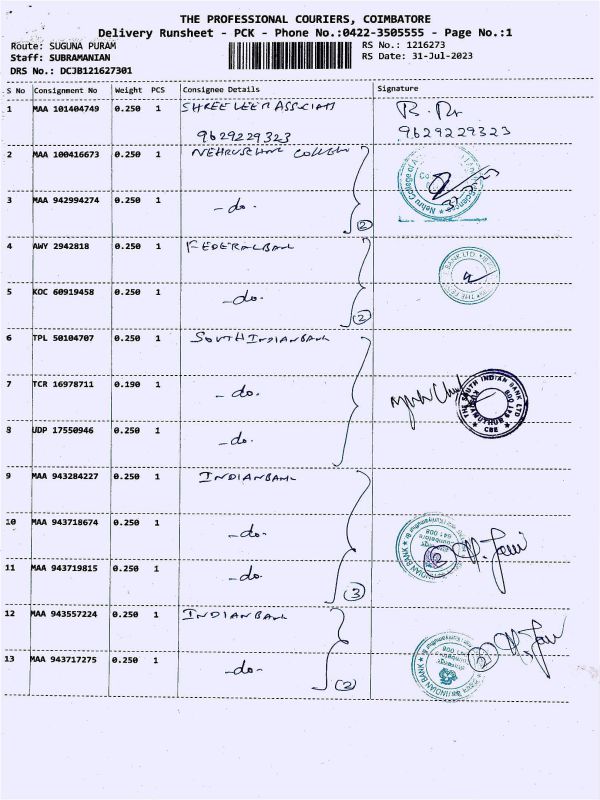 THE PROFESSIONAL COURIERS, COIMBATORE
Delivery Runsheet - PCK - Phone No.:0422-3505555 - Page No.:1
Route: SUGUNA PURAM
Staff: SUBRAMANIAN
DRS No.: DCJB121627301
RS No.: 1216273
RS Date: 31-Jul-2023
S No Consignment No Weight PCS Consignee Details Signature
1 MAA 101404749 0.250 1 SHREE
9629229323 9629229323
2 MAA 100416673 0.250 1
3 MAA 942994274 0.250 1 -do- (2)
4 AWY 2942818 0.250 1 FEDERAL BANK
5 KOC 60919458 0.250 1 -do- (2)
6 TPL 50104707 0.250 1 SOUTH INDIAN BANK
7 TCR 16978711 0.190 1 -do- THE SOUTH INDIAN BANK LTD
8 UDP 17550946 0.250 1 -do- CBE
9 MAA 943284227 0.250 1 INDIAN BANK
10 MAA 943718674 0.250 1 -do- INDIAN BANK
11 MAA 943719815 0.250 1 -do- (3)
12 MAA 943557224 0.250 1 INDIAN BANK
13 MAA 943717275 0.250 1 -do- (2) INDIAN BANK